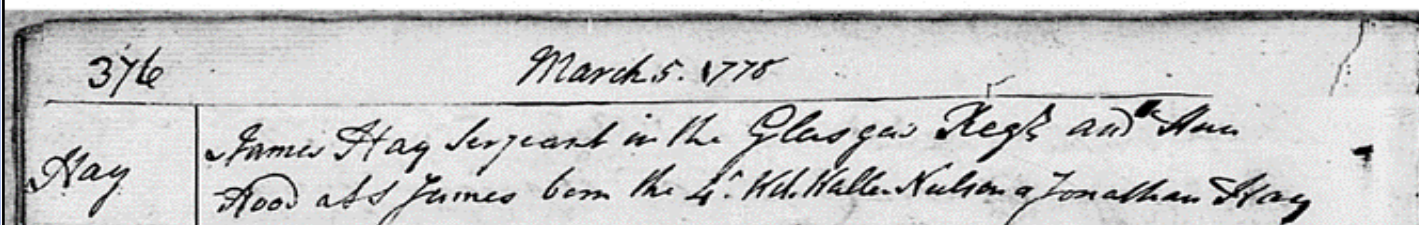 376
March 5. 1778
Hay
James Hay Serjeant in the Glasgow Regt and Ann
Hood a L S James born the 4t. Wit. Walter Neilson & Jonathan Hay